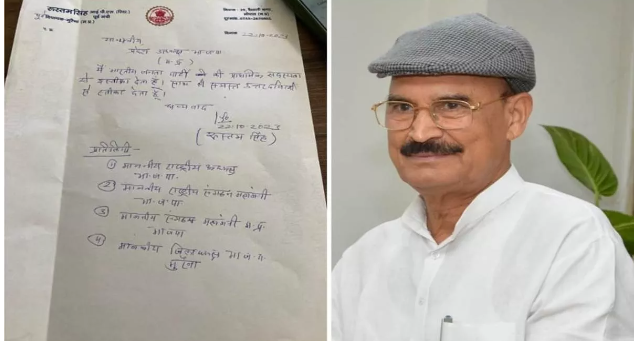 रुस्तम सिंह आई.पी.एस (रिटा.)
पूर्व मंत्री
दिनांक 22-10-2023
माननीय
प्रदेश अध्यक्ष भाजपा
(म.प्र)
में भारतीय जनता पार्टी की प्राथमिक सदस्यता
से इस्तीफा देता हूँ। साथ ही समस्त
से इस्तीफा देता हूँ।
धन्यवाद
22.10.2023
(रुस्तम सिंह)
प्रतिलिपी:-
① माननीय राष्ट्रीय अध्यक्ष
भा.ज.पा.
② माननीय राष्ट्रीय संगठन महामंत्री
भा.ज.पा.
③ माननीय संगठन महामंत्री म.प्र.
भाजपा
④ माननीय जिलाध्यक्ष भा.ज.पा.
मुरैना